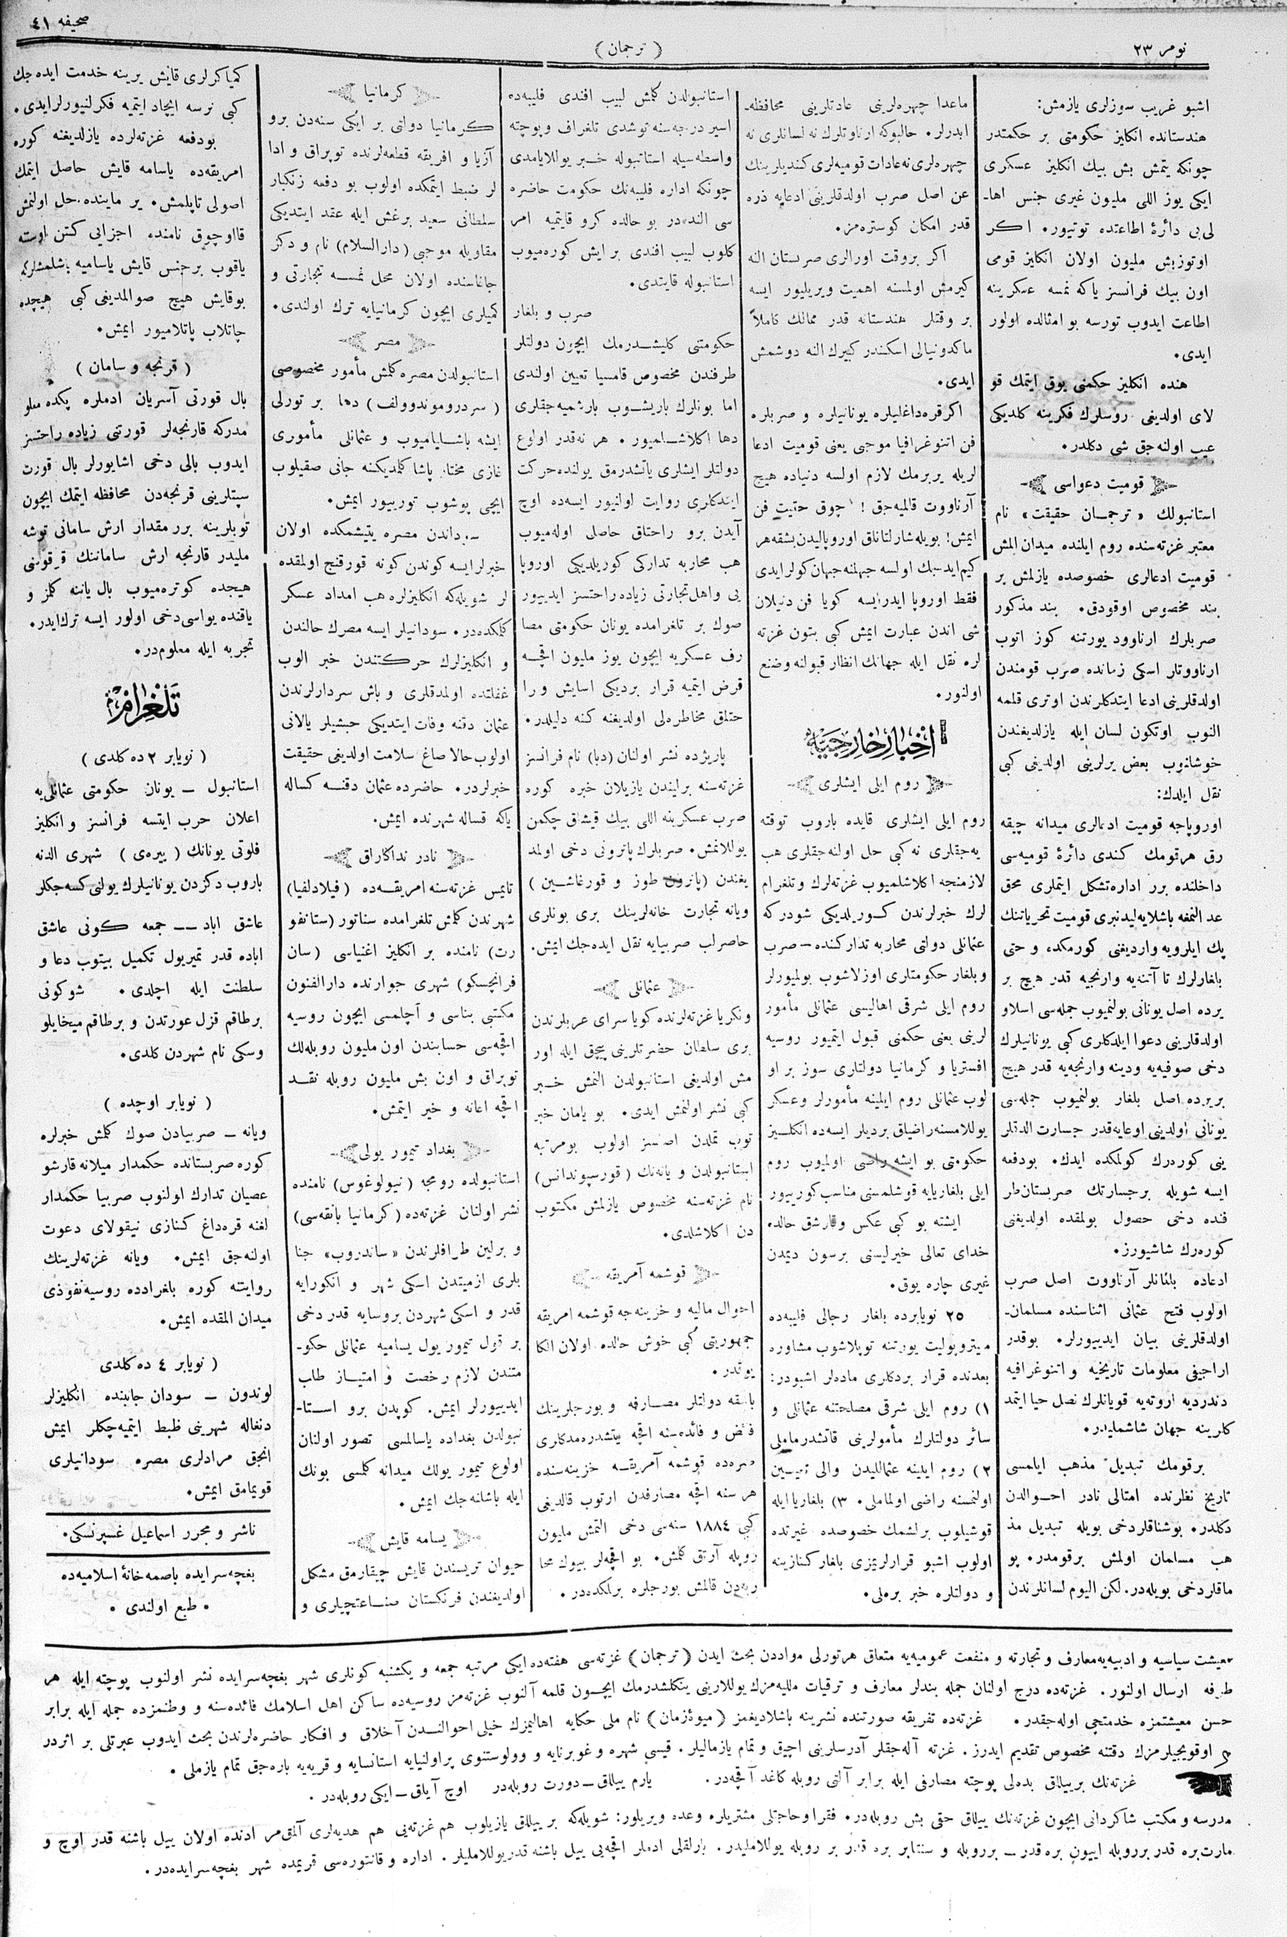 نومر ٢٣
( ترجمان )
صحیفه ٤١
اشبو غریب سوزلری یازمش:
هندستانده انکلیز حکومتی بر حکمتدر
چونکه یتمش بش بیك انکلیز عسکری
ایکی یوز اللی ملیون غیری جنس اها-
لی‌یی دائرهٔ اطاعتده توتیور. اکر
اوتوزبش ملیون اولان انکلیز قومی
اون بیك فرانسز یاکه نمسه عسکرینه
اطاعت ایدوب تورسه بو امثالده اولور
ایدی.
هنده انکلیز حکمنی یوق ایتمك قو
لای اولدیغی روسلرك فکرینه کلدیکی
عیب اولنه‌جق شی دکلدر.
قومیت دعواسی
استانبولك «ترجمان حقیقت» نام
معتبر غزته‌سنده روم ایلنده میدان المش
قومیت ادعالری خصوصده یازلمش بر
بند مخصوص اوقودق. بند مذکور
صربلرك ارناوود یورتنه کوز اتوب
ارناووتلر اسکی زمانده صرب قومندن
اولدقلرینی ادعا ایتدکلرندن اوتری قلمه
النوب اوتکون لسان ایله یازلدیغندن
خوشلانوب بعض یرلرینی اولدیغی کبی
نقل ایلدك:
اوروپاجه قومیت ادعالری میدانه چیقه
رق هرقومك کندی دائرهٔ قومیه‌سی
داخلنده برر اداره‌تشکل ایتملری محق
پك ایلرویه واردیغنی کورمکده و حتی
بلغارلرك تا آتنه‌یه وارنجیه قدر هیچ بر
یرده اصل یونانی بولنمیوب جمله‌سی اسلاو
اولدقلرینی دعوا ایلدکلری کبی یونانیلرك
دخی صوفیه‌یه ودینه وارنجه‌یه قدر هیچ
بریرده اصل بلغار بولنمیوب جمله‌سی
یونانی اولدینی اوعایه‌قدر جسارت الدقلر
ینی کوردرك کولمکده ایدك. بودفعه
ایسه شویله برجسارتك صربستان‌طر
فنده دخی حصول بولمقده اولدیغنی
کوره‌رك شاشیورز.
ادعاده بلنانلر آرناووت اصل صرب
اولوب فتح عثمانی اثناسنده مسلمان-
اولدقلرینی بیان ایدییورلر. بوقدر
اراجیفی معلومات تاریخیه و اتنوغرافیه
دندردیه اروته‌یه قویانلرك نصل حیا ایتمد
کلرینه جهان شاشملیدر.
برقومك تبدیل مذهب ایلمسی
تاریخ نظرنده امثالی نادر احوالدن
دکلدر. بوشناقلردخی بویله تبدیل مذ
هب مسلمان اولمش برقومدر. پو
ماقلردخی بویله‌در. لکن الیوم لسانلرندن
ماعدا چهره‌لرینی عادتلرینی محافظه-
ایدرلر. حالبوکه ارناوتلرك نه لسانلری نه
چهره‌لری نه‌عادات قومیه‌لری کندیلرینك
عن اصل صرب اولدقلرینی ادعایه ذره
قدر امکان کوستره‌مز.
اکر بروقت اورالری صربستان الله
کیرمش اولمسنه اهمیت ویریلیور ایسه
بر وقتلر هندستانه قدر ممالك کاملاً
ماکدونیالی اسکندر کبیرك الله دوشمش
ایدی.
اکرقره‌داغلیلره یونانیلره و صربلره
فن اتنوغرافیا موجی یعنی قومیت ادعا
لریله یربرمك لازم اولسه دنیاده هیچ
آرناووت قالمیه‌جق! چوق حتیت فن
ایمش! بویله‌شارلتانلق اوروپالیدن‌بشقه‌هر
کیم‌ایده‌جك اولسه جهلنه‌جهان‌کولرایدی
فقط اوروپا ایدرایسه کویا فن دنیلان
شی اندن عبارت ایمش کبی بتون غزته
لره نقل ایله جهانك انظار قبولنه وضع
اولنور.
اخبار خارجیه
روم ایلی ایشلری
روم ایلی ایشلری قایده باروب توقته
یه‌جقلری نه‌کبی حل اولنه‌جقلری هب
لازمنجه اکلاشلمیوب غزته‌لرك وتلغرام
لرك خبرلرندن کوریلدیکی شودرکه
عثمانلی دولتی محاربه تدارکنده - صرب
و بلغار حکومتلری اوزلاشوب بولمیورلر
روم ایلی شرقی اهالیسی عثمانلی مأمور
لرینی یعنی حکمنی قبول ایتمیور روسیه
افستریا و کرمانیا دولتلری سوز بر او
لوب عثمانلی روم ایلینه مأمورلر وعسکر
یوللامسنه راضیلق بردیلر ایسه‌ده انکلیز
حکومتی بو ایشه راضی اولمیوب روم
ایلی بلغاریایه قوشلمسنی مناسب‌کوریپور
ایشته بو کبی عکس و قارشق حالده
خدای تعالی خیرلیسنی برسون دیمدن
غیری چاره یوق.
٢٥ نویابرده بلغار رجالی فلیبه‌ده
میتروپولیت یورتنه توپلاشوب مشاوره
بعدنده قرار بردکلری ماده‌لر اشبودر:
١) روم ایلی شرقی مصلحتنه عثمانلی و
سائر دولتلرك مأمورلرینی قاتشدرماملی
٢) روم ایلینه عثمانلیدن والی تعیین
اولنمسنه راضی اولماملی. ٣) بلغاریا ایله
قوشیلوب برلشمك خصوصده غیرتده
اولوب اشبو قرارلریزی بلغارکنازینه
و دولتلره خبر برملی.
استانبولدن کلمش لبیب افندی فلیبه‌ده
اسیر درجه‌سنه توشدی تلغراف وپوچته
واسطه‌سیله استانبوله خبر یوللایامدی
چونکه اداره فلیبه‌نك حکومت حاضره
سی النده‌در بو حالده کرو قایتمیه امر
کلوب لبیب افندی برایش کوره‌میوب
استانبوله قایتدی.
صرب و بلغار
حکومتنی کلیشدرمك ایچون دولتلر
طرفندن مخصوص قامسیا تعیین اولندی
اما بونلرك باریشوب بارشمیه‌جقلری
دها اکلاشلمیور. هر نه‌قدر اولوغ
دولتلر ایشلری یاتشدرمق یولنده‌حرکت
ایتدکلری روایت اولنیور ایسه‌ده اوچ
آیدن برو راحتلق حاصلی اوله‌میوب
هب محاربه تدارکی کوریلدیکی اوروپا
یی واهل‌تجارتی زیاده راحتسز ایدییور
صوك بر تلغرامده یونان حکومتی مصا
رف عسکریه ایچون یوز ملیون اقچه
قرض ایتمیه قرار بردیکی اسایش و را
حتلق مخاطره‌لی اولدیغنه کنه دلیلدر.
پاریژده نشر اولنان (دبا) نام فرانسز
غزته‌سنه برلیندن یازیلان خبره کوره
صرب عسکرینه اللی بیك قیشلق چکمن
یوللانمش. صربلرك پاترونی دخی اولمد
یغندن (پاترون طوز و قورغاشین)
ویانه تجارت خانه‌لرینك بری بونلری
حاضرلب صربیایه نقل ایده‌جك ایمش.
عثمانلی
ونکریا غزته‌لرنده کویا سرای عربلرندن
بری سلطان حضرتلرینی پچق ایله اور
مش اولدیغی استانبولدن النمش خبر
کبی نشر اولنمش ایدی. بو یامان خبر
توب تملدن اصلسز اولوب بومرتبه
استانبولدن و یانه‌نك (قورسپوندانس)
نام غزته‌سنه مخصوص یازلمش مکتوب
دن اکلاشلدی.
قوشمه آمریقه
احوال مالیه و خزینه‌جه قوشمه امریقه
جمهوریتی کبی خوش حالده اولان الکا
یوقدر.
باشقه دولتلر مصارفه و بورجلرینك
فائض و فائده‌سنه اقچه یتشدره‌مدکلری
صره‌ده قوشمه آمریقه خزینه‌سنده
هر سنه اقچه مصارفدن ارتوب قالدیغی
کبی ١٨٨٤ سنه‌سی دخی التمش ملیون
روبله آرتق کلمش. بو اقچه‌لر بیوك محا
ربه‌دن قالمش بورجلره برلمکده‌در.
کرمانیا
کرمانیا دولتی بر ایکی سنه‌دن برو
آزیا و افریقه قطعه‌لرنده توپراق و ادا
لر ضبط ایتمکده اولوب بو دفعه زنکبار
سلطانی سعید برغش ایله عقد ایتدیکی
مقاوله موجبی (دارالسلام) نام و دکز
جاغاسنده اولان محل نمسه تجارتی و
کمیلری ایچون کرمانیایه ترك اولندی.
مصر
استانبولدن مصره کلمش مأمور مخصوصی
(سردروموندوولف) دها بر تورلی
ایشه باشلایامیوب و عثمانلی مأموری
غازی مختار پاشا کلمدیکنه جانی صقیلوب
ایچی پوشوب تورییور ایمش.
سوداندن مصره یتیشمکده اولان
خبرلرایسه کوندن کونه قورقنج اولمقده
لر شویله‌که انکلیزلره هب امداد عسکر
کلمکده‌در. سودانیلر ایسه مصرك حالندن
و انکلیزلرك حرکتندن خبر الوب
غفلتده اولمدقلری و باش سردارلرندن
عثمان دقنه وفات ایتدیکی حبشیلر یالانی
اولوب‌حالا صاغ سلامت اولدیغی حقیقت
خبرلردر. حاضرده عثمان دقنسه کساله
یاکه قساله شهرنده ایمش.
نادر نداکارلق
تایمس غزته‌سنه امریقه‌ده (فیلادلفیا)
شهرندن کلمش تلغرامده سناتور (ستانفو
رت) نامنده بر انکلیز اغنیاسی (سان
فرانچسکو) شهری جوارنده دارالفنون
مکتبی بناسی و آچلمسی ایچون روسیه
اقچه‌سی حسابندن اون ملیون روبله‌لك
توپراق و اون بش ملیون روبله نقد
اقچه اعانه و خیر ایتمش.
بغداد تیمور یولی
استانبولده رومجه (نیولوغوس) نامنده
نشر اولنان غزته‌ده (کرمانیا بانقه‌سی)
و برلین طرافلرندن «ساندروب» جنا
بلری ازمیتدن اسکی شهر و انکورایه
قدر و اسکی شهردن بروسایه قدر دخی
بر قول تیمور یول یسامیه عثمانلی حکو-
متندن لازم رخصت و امتیاز طلب
ایدییورلر ایمش. کوپدن برو استا-
نبولدن بغداده یاسالمسی تصور اولنان
اولوغ تیمور یولك میدانه کلمسی بونك
ایله باشلنه‌جك ایمش.
یسامه قایش
حیوان تریسندن قایش چیقارمق مشکل
اولدیغندن فرنکستان صناعتچیلری و
کمیاکرلری قایش یرینه خدمت ایده‌جك
کبی نرسه ایجاد ایتمیه فکرلنیورلرایدی.
بودفعه غزته‌لرده یازلدیغنه کوره
امریقه‌ده یاسامه قایش حاصل ایتمك
اصولی تاپلمش. یر ماینده حل اولنمش
قااوچوق نامنده اجزایی کتن اوسته
یاقوب برجنس قایش یاسامیه باشلمشلرکه
بوقایش هیچ صوالمدیغی کبی هیچده
چاتلاب پاتلامیور ایمش.
( قرنجه و سامان )
بال قورتی آسریان ادملره پکده معلو
مدرکه قارنجه‌لر قورتنی زیاده راحتسز
ایدوب بالی دخی اشایورلر بال قورت
سپتلرینی قرنجه‌دن محافظه ایتمك ایچون
توبلرینه برر مقدار ارش سامانی توشه
ملیدر قارنجه ارش سامانتك قوقوسنی
هیچده کوتره‌میوب بال یاننه کلمز و
یاقنده یواسی دخی اولور ایسه ترك‌ایدر.
تجربه ایله معلومدر.
تلغرام
( نویابر ٢ ده کلدی )
استانبول - یونان حکومتی عثمانلی‌یه
اعلان حرب ایتسه فرانسز و انکلیز
فلوتی یونانك (پیره‌ی) شهری الدنه
باروب دکزدن یونانیلرك یولنی کسه‌جکلر
عاشق اباد - جمعه کونی عاشق
اباده قدر تیمریول تکمیل بیتوب دعا و
سلطنت ایله اچلدی. شوکونی
برطاقم قزل عورتدن و برطاقم میخایلو
وسکی نام شهردن کلدی.
( نویابر اوچده )
ویانه - صربیادن صوك کلمش خبرلره
کوره صربستانده حکمدار میلانه قارشو
عصیان تدارك اولنوب صربیا حکمدار
لغنه قره‌داغ کنازی نیقولای دعوت
اولنه‌جق ایمش. ویانه غزته‌لرینك
روایتنه کوره بلغرادده روسیه‌نفوذی
میدان المقده ایمش.
( نویابر ٤ ده کلدی )
لوندون - سودان جانبنده انکلیزلر
دنغاله شهرینی ظبط ایتمیه‌چکلر ایمش
انجق مرادلری مصره سودانیلری
قویمامق ایمش.
ناشر و محرر اسماعیل غسپرنسکی.
بغچه‌سرایده باصمه‌خانهٔ اسلامیه‌ده
طبع اولندی
معیشت سیاسیه و ادبیه‌یه‌معارف و تجارته و منفعت عمومیه‌یه متعلق هرتورلی مواددن بحث ایدن (ترجمان) غزته‌سی هفته‌ده‌ایکی مرتبه جمعه و یکشنبه کونلری شهر بغچه‌سرایده نشر اولنوب پوچته ایله هر
طرفه ارسال اولنور. غزته‌ده درج اولنان جمله بندلر معارف و ترقیات ملیه‌مزك یوللارینی ینکلشدرمك ایچون قلمه آلنوب غزته‌مز روسیه‌ده ساکن اهل اسلامك فائده‌سنه و وطنمزده جمله ایله برابر
حسن معیشتمزه خدمتجی اوله‌جقدر. غزته‌ده تفریقه صورتنده نشرینه باشلادیغمز (میوئزمان) نام ملی حکایه اهالیمزك خیلی احوالندن آخلاق و افکار حاضره‌لرندن بحث ایدوب عبرتلی بر اثردر
اوقویجیلرمزك دقتنه مخصوص تقدیم ایدرز. غزته آله‌جقلر آدرسلرینی اچیق و تمام یازمالیلر. قیسی شهره و غوبرنایه و وولوستنوی پراولنیایه استانسایه و قریه‌یه باره‌جق تمام یازملی.
غزته‌نك برییللق بده‌لی پوچته مصارفی ایله برابر آلتی روبله کاغد آقچه‌در. یارم ییللاق - دورت روبله‌در اوچ آیلاق - ایکی روبله‌در.
مدرسه و مکتب شاکردانی ایچون غزته‌نك ییللق حقی بش روبله‌در. فقرا وحاجتلی مشتریلره وعده ویریلور: شویله‌که برییللق یازیلوب هم غزته‌یی هم هدیه‌لری آلمق‌مر ادنده اولان ییل باشنه قدر اوچ و
مارت‌بره قدر برروبله اییون بره‌قدر - برروبله و سنتابر بره قدر بر روبله یوللاملیدر. بارلقلی ادملر اقچه‌یی ییل باشنه قدریوللاملیلر. اداره و قانتوره‌سی قریمده شهر بغچه‌سرایده‌در.